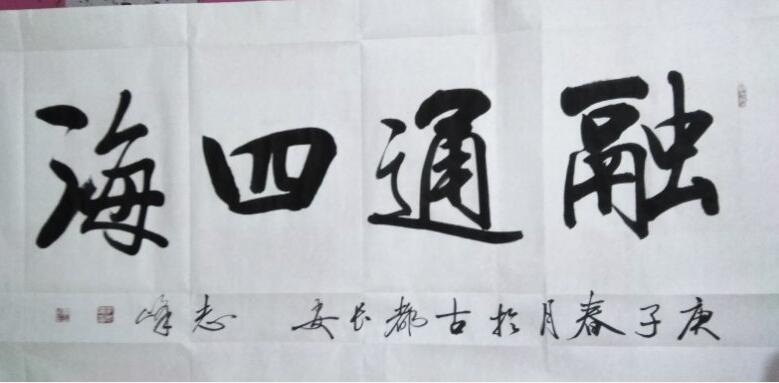 融通四海
庚子春月於古都长安 志峰